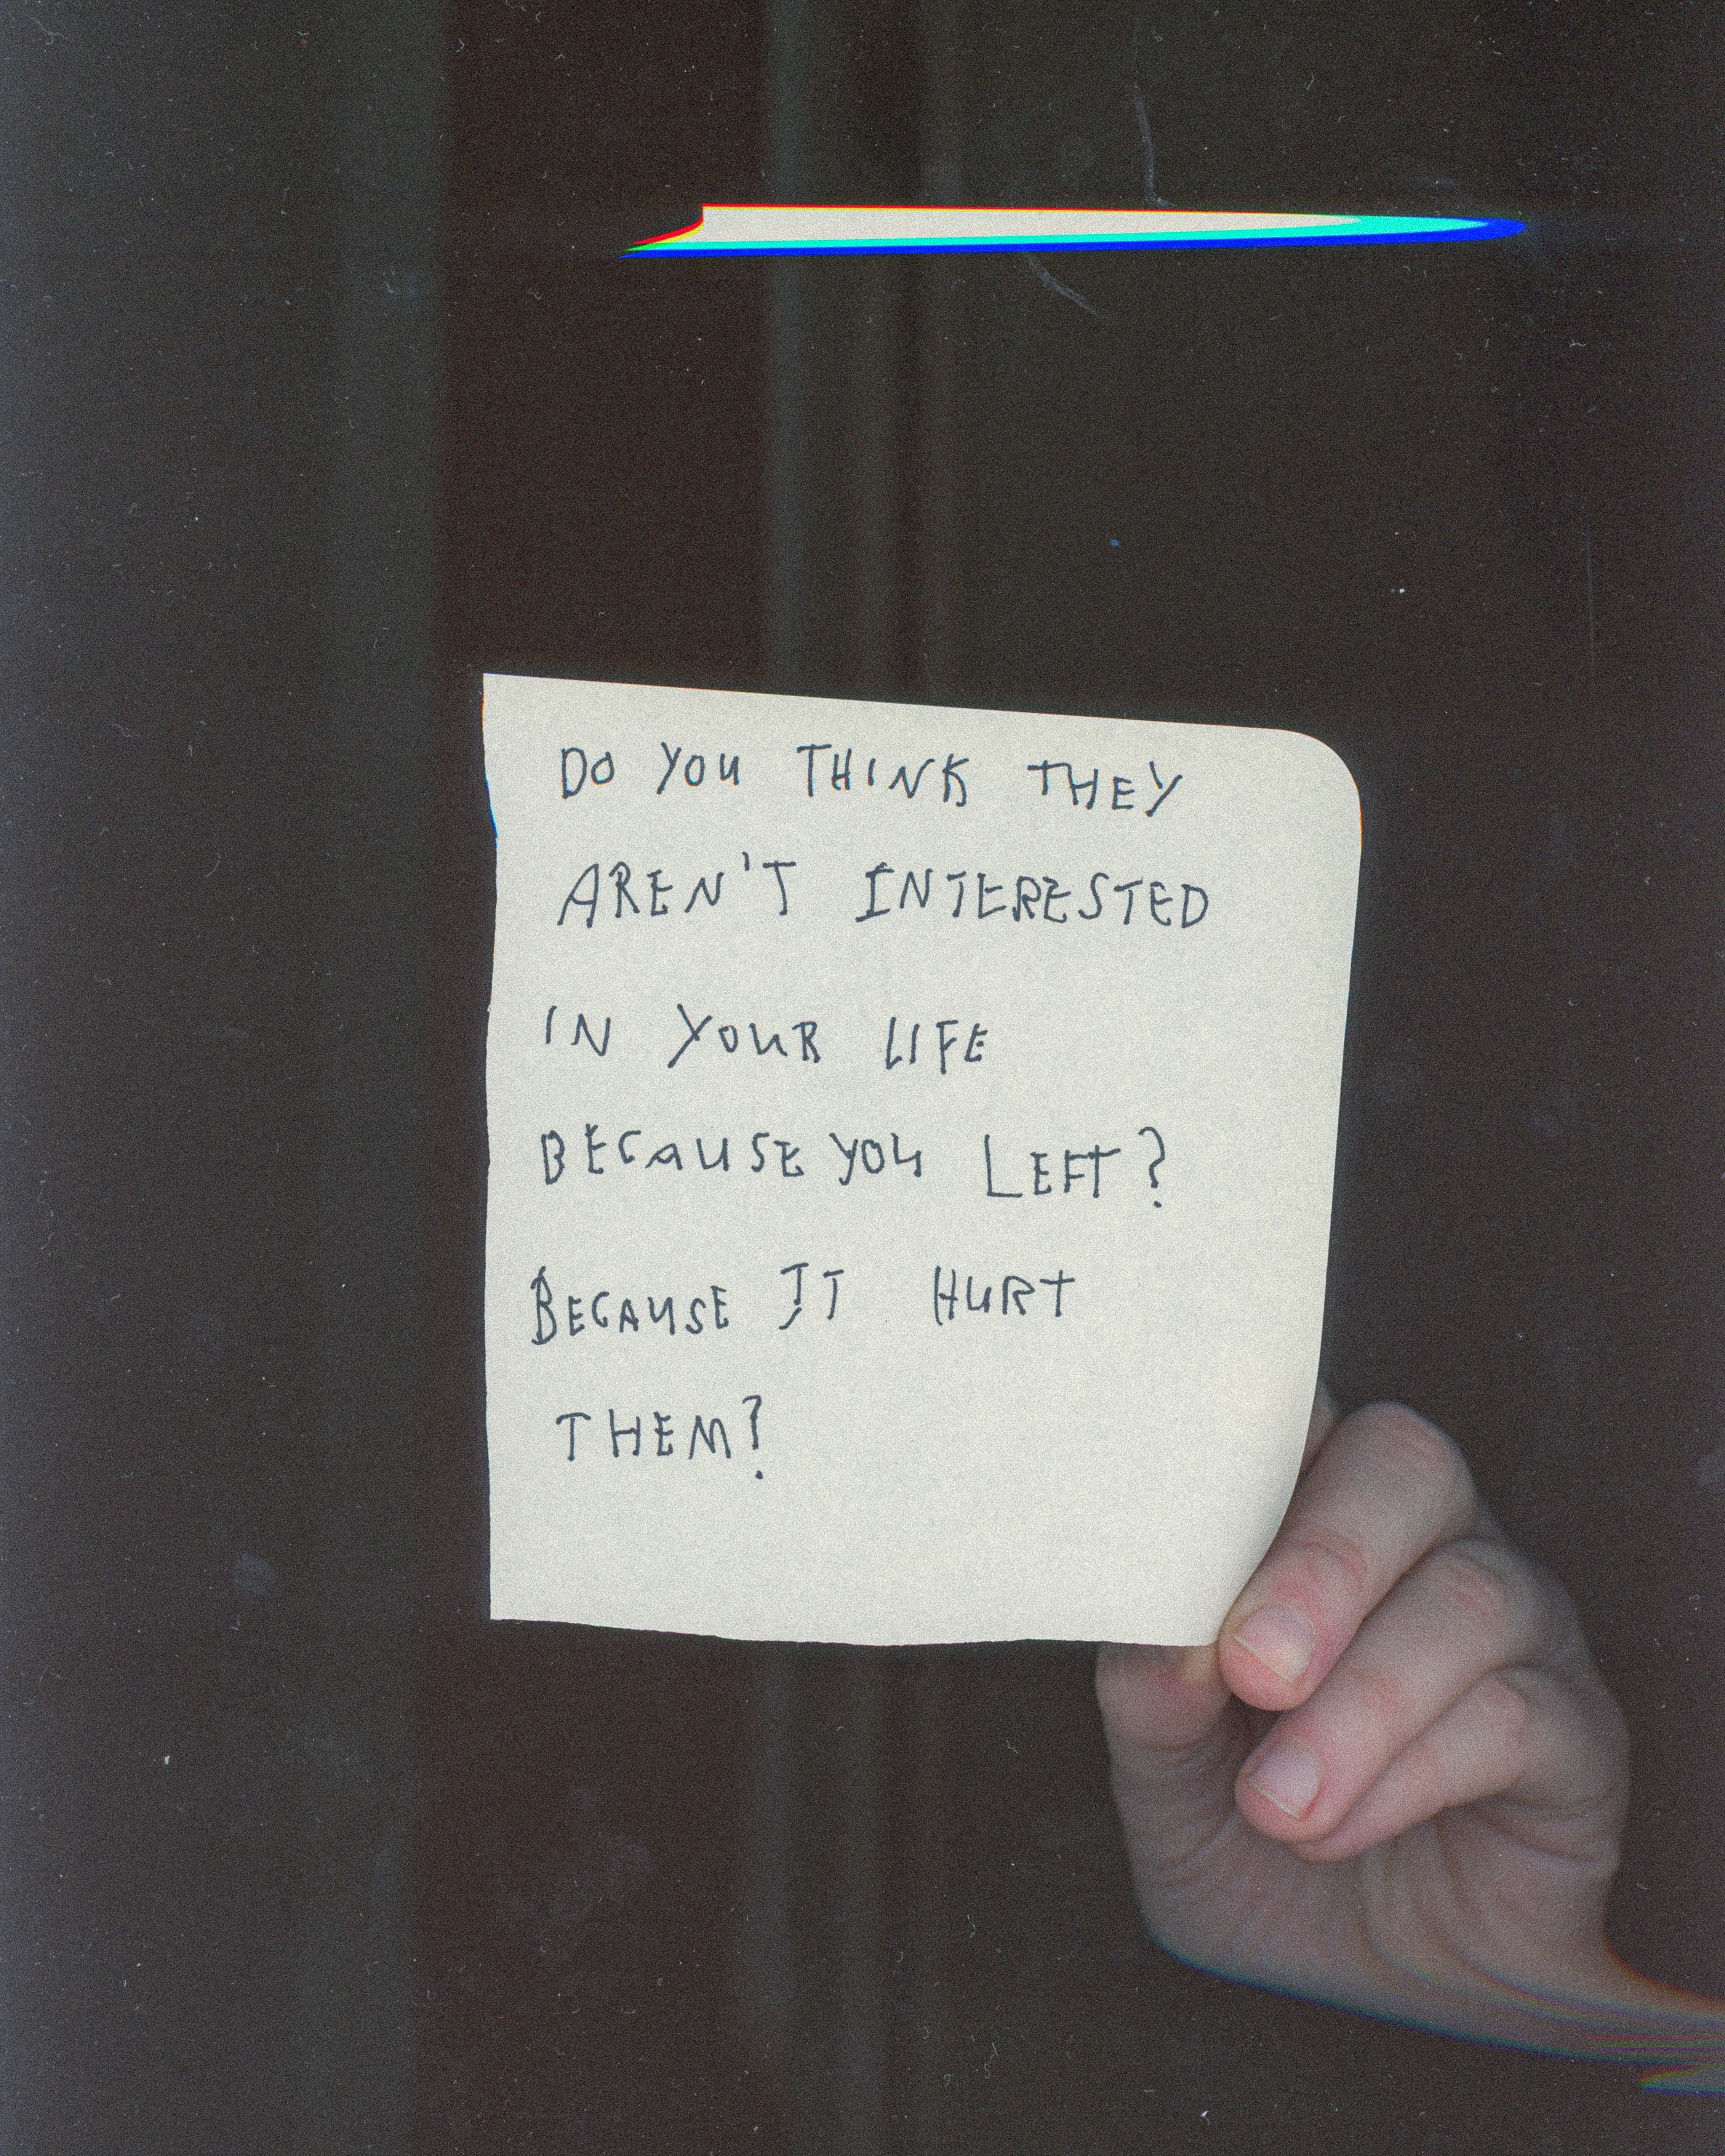 DO YOU THINK THEY
AREN'T INTERESTED
IN YOUR LIFE
BECAUSE YOU LEFT?
BECAUSE IT HURT
THEM?